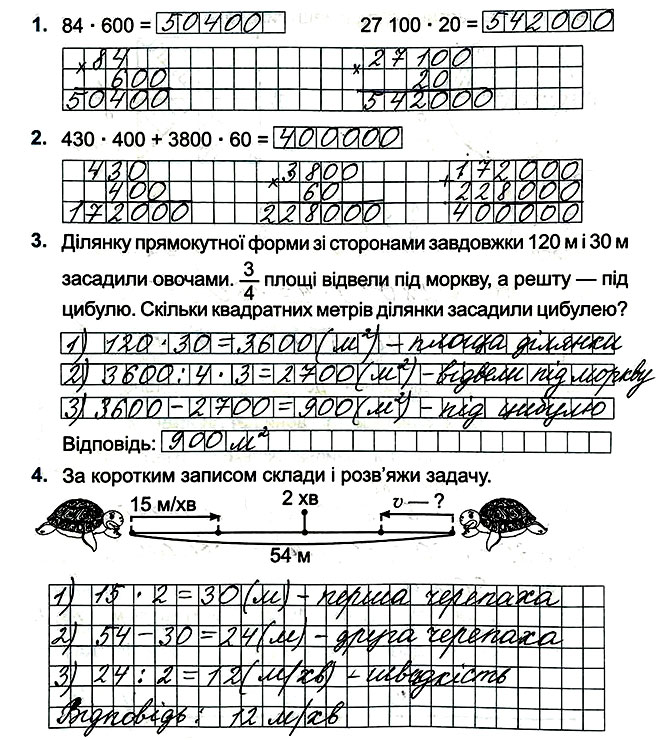 1. 84 · 600 = 50400 27 100 · 20 = 542000
×84 ×27100
600 20
50400 542000
2. 430 · 400 + 3800 · 60 = 400000
430 ×3800 +172000
400 60 228000
172000 228000 400000
3. Ділянку прямокутної форми зі сторонами завдовжки 120 м і 30 м
засадили овочами. 3/4 площі відвели під моркву, а решту — під
цибулю. Скільки квадратних метрів ділянки засадили цибулею?
1) 120 · 30 = 3600 (м²) – площа ділянки
2) 3600 : 4 · 3 = 2700 (м²) – відвели під моркву
3) 3600 – 2700 = 900 (м²) – під цибулю
Відповідь: 900 м²
4. За коротким записом склади і розв’яжи задачу.
15 м/хв 2 хв v — ?
54 м
1) 15 · 2 = 30 (м) – перша черепаха
2) 54 – 30 = 24 (м) – друга черепаха
3) 24 : 2 = 12 (м/хв) – швидкість
Відповідь: 12 м/хв